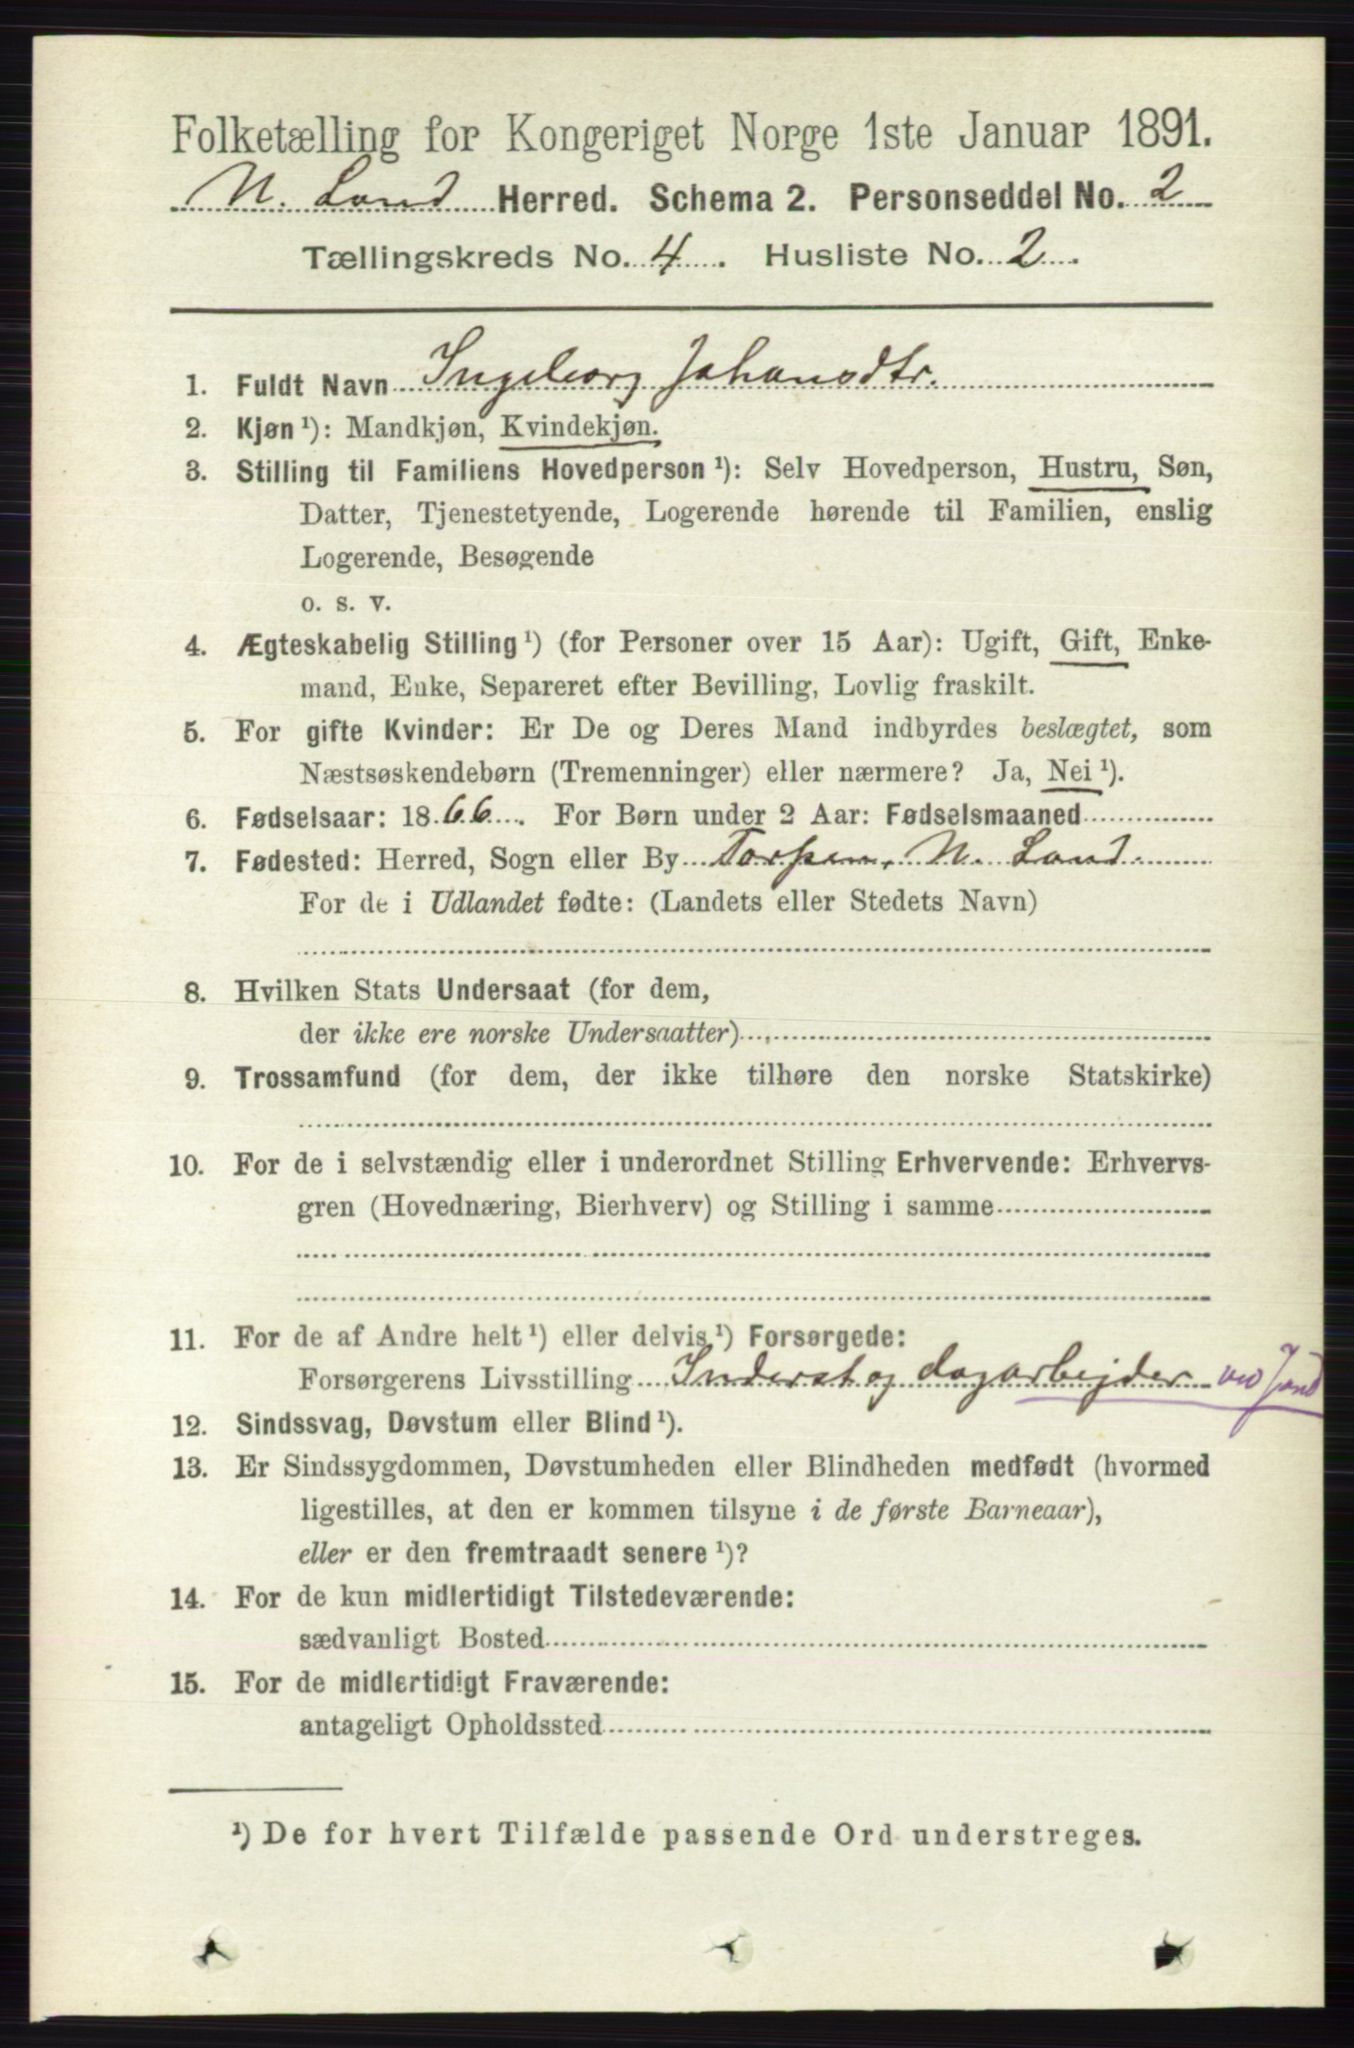 Folketælling for Kongeriget Norge 1ste Januar 1891.
N. Land Herred. Schema 2. Personseddel No. 2
Tællingskreds No. 4. Husliste No. 2.
1. Fuldt Navn Ingeborg Johansdtr.
2. Kjøn ¹): Mandkjøn, Kvindekjøn.
3. Stilling til Familiens Hovedperson ¹): Selv Hovedperson, Hustru, Søn,
Datter, Tjenestetyende, Logerende hørende til Familien, enslig
Logerende, Besøgende
o. s. v.
4. Ægteskabelig Stilling ¹) (for Personer over 15 Aar): Ugift, Gift, Enke-
mand, Enke, Separeret efter Bevilling, Lovlig fraskilt.
5. For gifte Kvinder: Er De og Deres Mand indbyrdes beslægtet, som
Næstsøskendebørn (Tremenninger) eller nærmere? Ja, Nei ¹).
6. Fødselsaar: 1866. For Børn under 2 Aar: Fødselsmaaned
7. Fødested: Herred, Sogn eller By Torpen, N. Land.
For de i Udlandet fødte: (Landets eller Stedets Navn)
8. Hvilken Stats Undersaat (for dem,
der ikke ere norske Undersaatter)
9. Trossamfund (for dem, der ikke tilhøre den norske Statskirke)
10. For de i selvstændig eller i underordnet Stilling Erhvervende: Erhvervs-
gren (Hovednæring, Bierhverv) og Stilling i samme
11. For de af Andre helt ¹) eller delvis ¹) Forsørgede:
Forsørgerens Livsstilling Inderst og dagarbejder ved Jord
12. Sindssvag, Døvstum eller Blind ¹).
13. Er Sindssygdommen, Døvstumheden eller Blindheden medfødt (hvormed
ligestilles, at den er kommen tilsyne i de første Barneaar),
eller er den fremtraadt senere ¹)?
14. For de kun midlertidigt Tilstedeværende:
sædvanligt Bosted
15. For de midlertidigt Fraværende:
antageligt Opholdssted
¹) De for hvert Tilfælde passende Ord understreges.